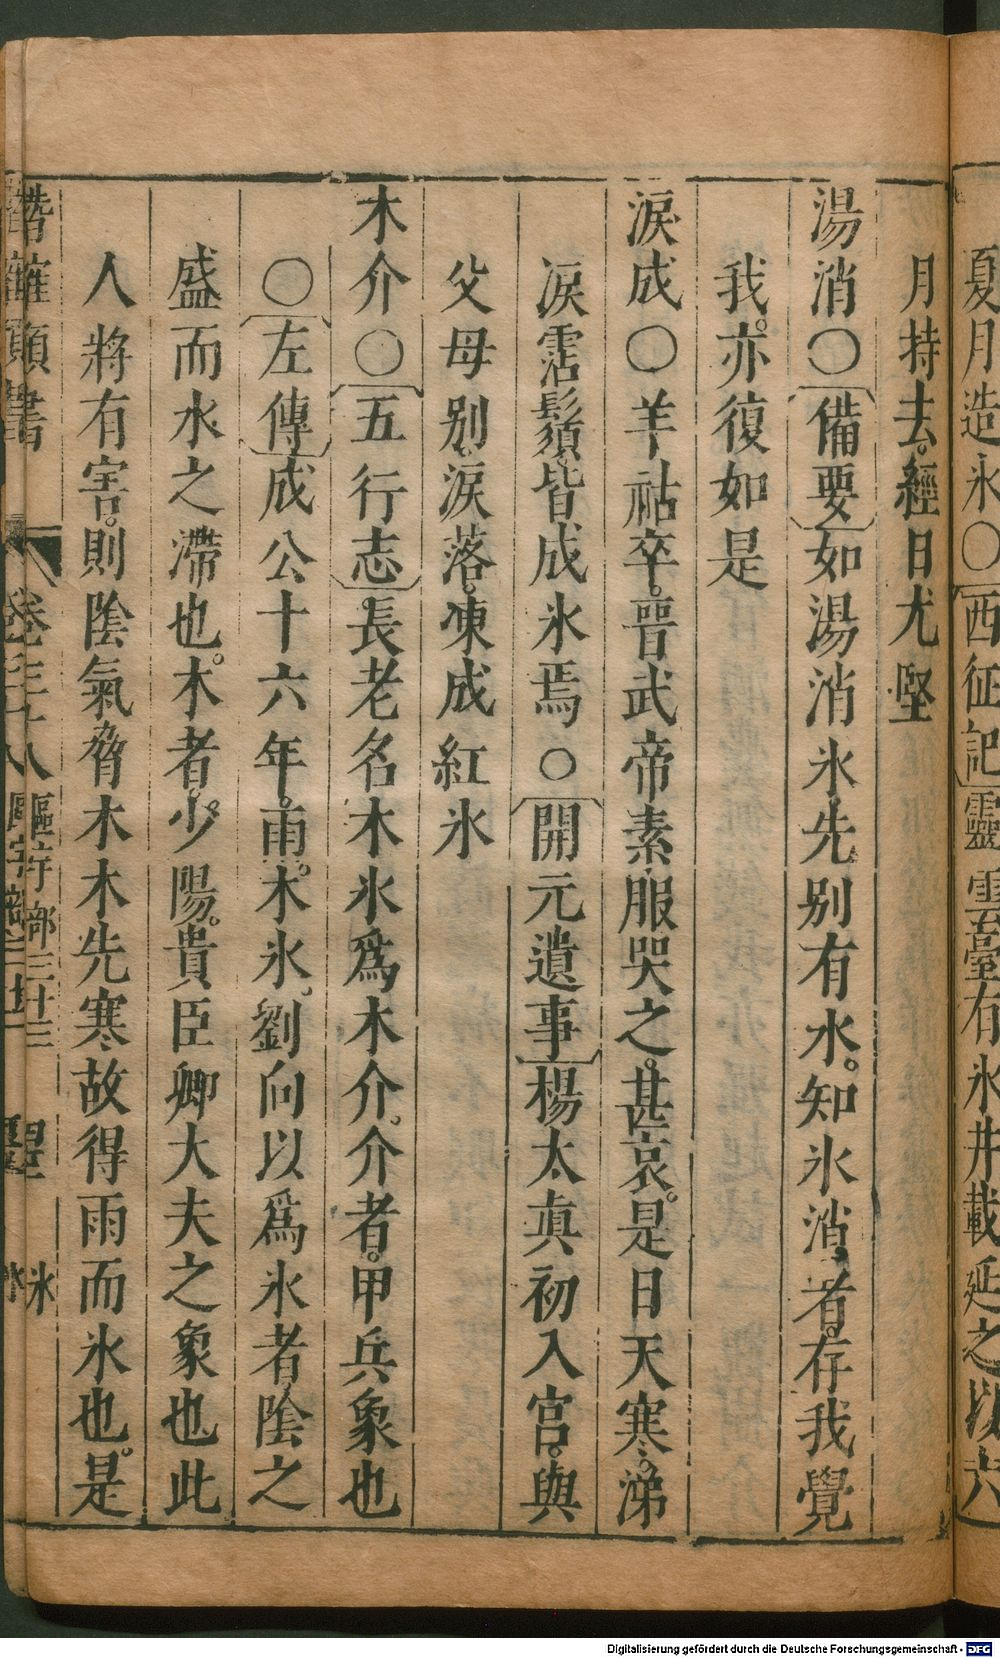 夏月造氷〇西征記靈雲臺有氷井載延之以六
月持去經日尤堅
湯消〇備要如湯消氷先別有水知氷消者存我覺
我亦復如是
淚成〇羊祜卒晉武帝素服哭之甚哀是日天寒涕
淚霑鬚鬢皆成氷焉〇開元遺事楊太眞初入宮與
父母別淚落凍成紅氷
木介〇五行志長老名木氷爲木介介者甲兵象也
〇左傳成公十六年雨木氷劉向以爲氷者陰之
盛而水之滯也木者少陽貴臣卿大夫之象也此
人將有害則陰氣脅木木先寒故得雨而氷也是
類書 卷三十八 區宇部三 廿三 氷
Digitalisierung gefördert durch die Deutsche Forschungsgemeinschaft - DFG